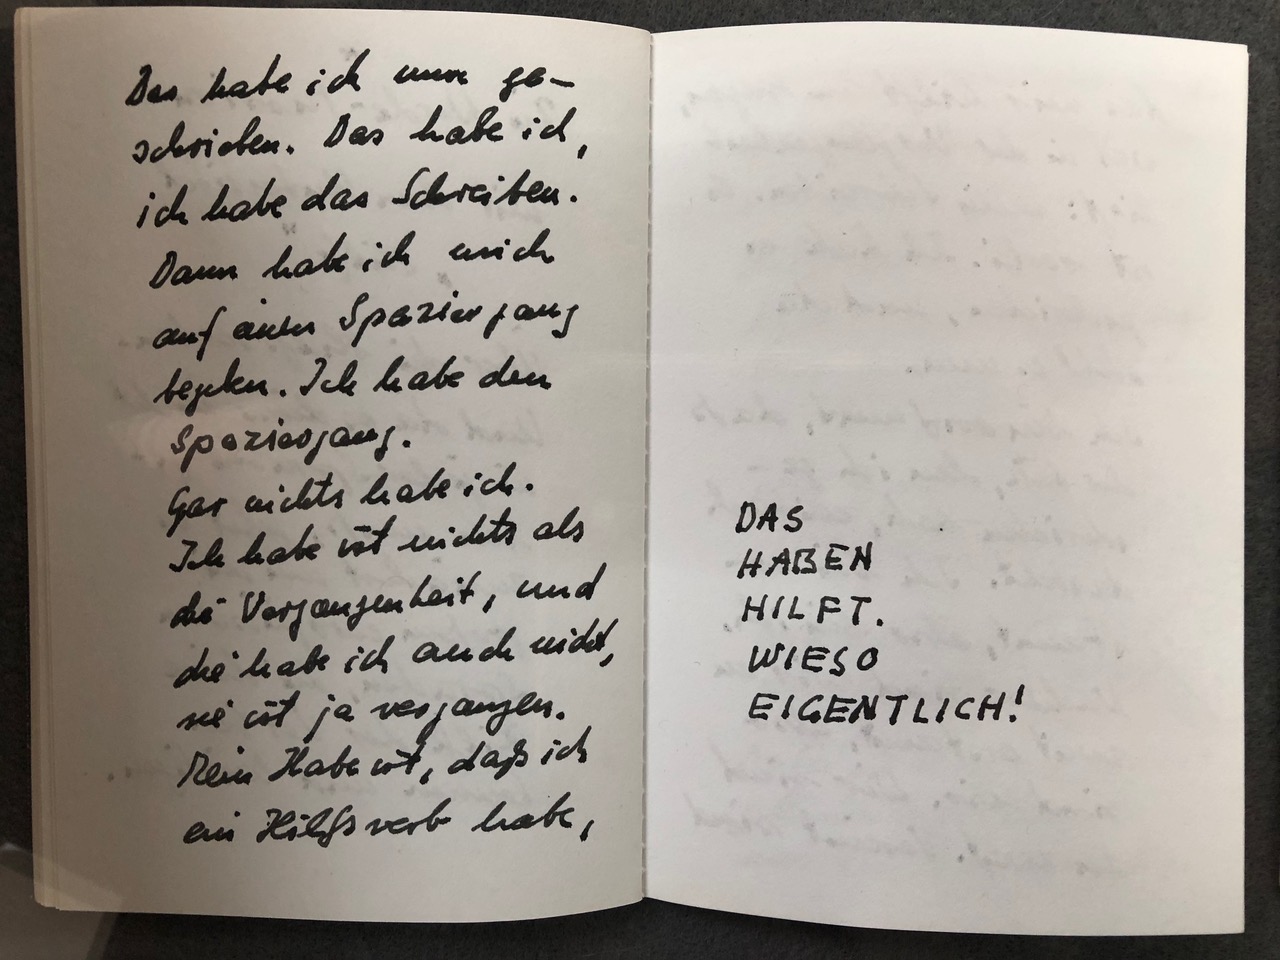 Das habe ich nun ge-
schrieben. Das habe ich,
ich habe das Schreiben.
Dann habe ich mich
auf einen Spaziergang
begeben. Ich habe den
Spaziergang.
Gar nichts habe ich.
Ich habe ist nichts als
die Vergangenheit, und
die habe ich auch nicht,
sie ist ja vergangen.
Mein Habe ist, daß ich
ein Hilfsverb habe,
DAS
HABEN
HILFT.
WIESO
EIGENTLICH!